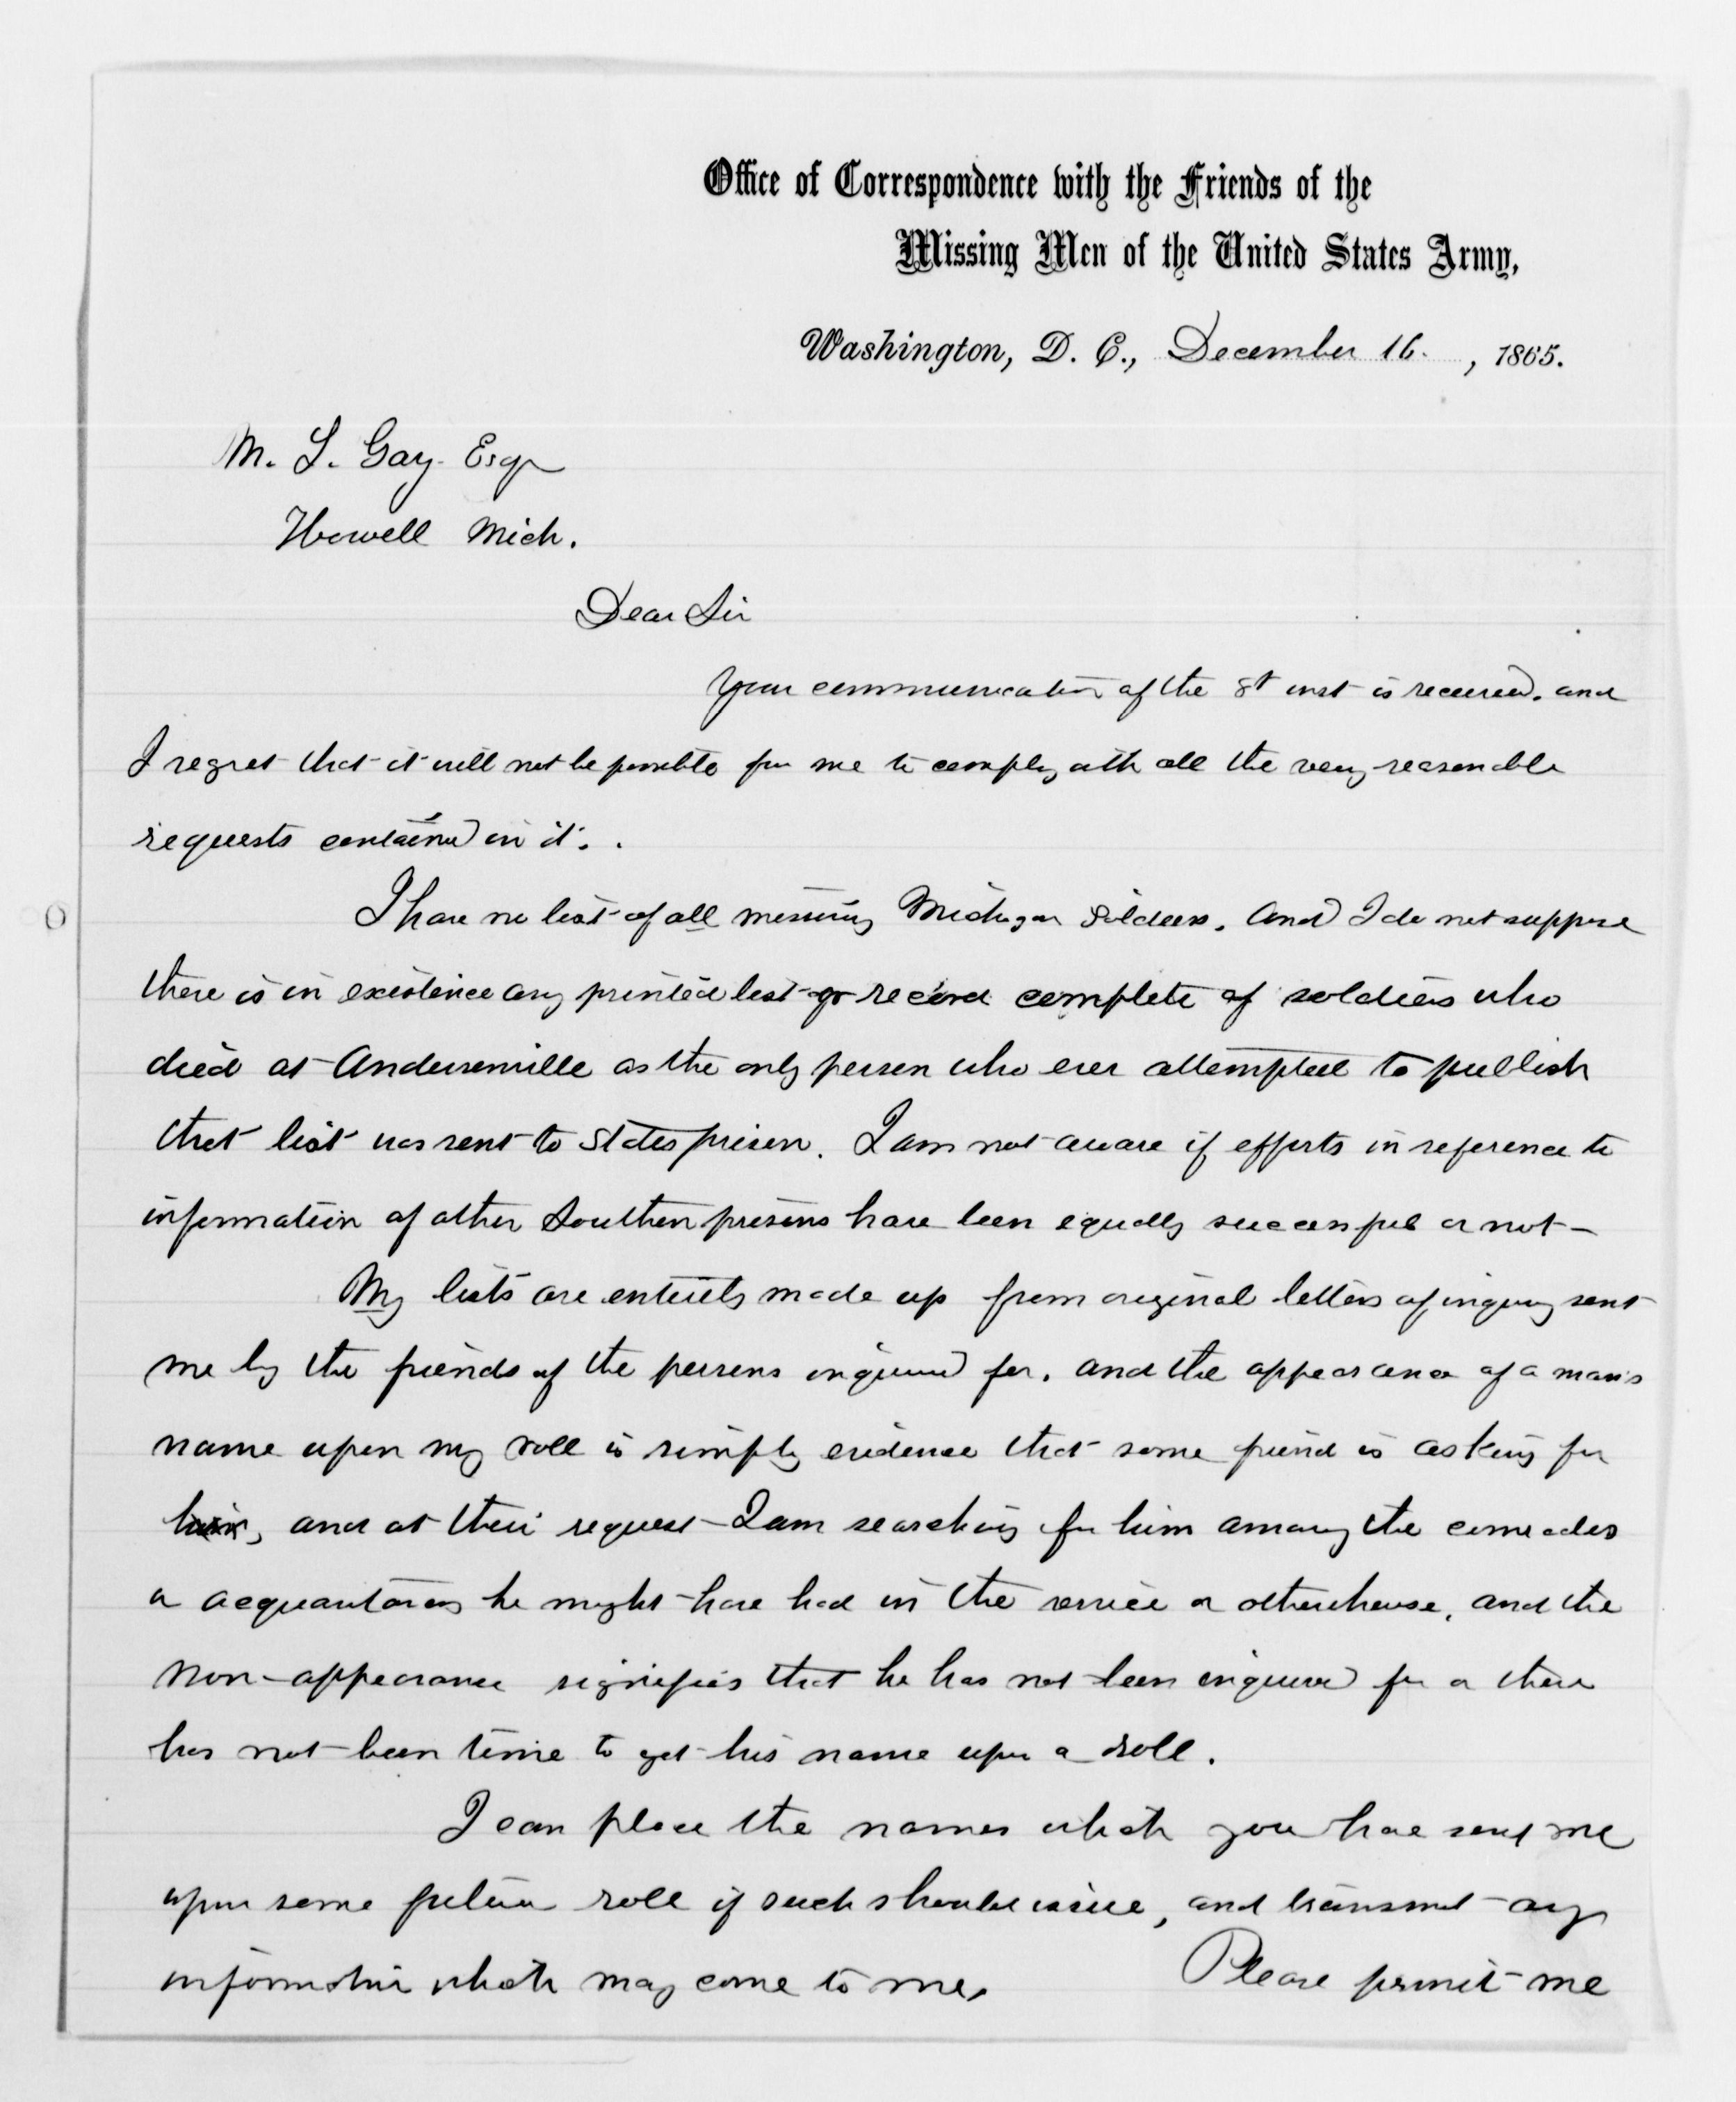 Office of Correspondence with the Friends of the
Missing Men of the United States Army,
Washington, D. C., December 16. , 1865.
M. L. Gay. Esqr
Howell Mich.
Dear Sir
Your communication of the 8th inst is received. and
I regret that it will not be possible for me to comply with all the very reasonable
requests contained in it. .
I have no list of all missing Michigan Soldiers. And I do not suppose
there is in existence any printed list or record complete of soldiers who
died at Andersonville as the only person who ever attempted to publish
that list was sent to States prison. I am not aware if efforts in reference to
information of other Southern prisons have been equally successful or not—
My lists are entirely made up from original letters of inquiry sent
me by the friends of the persons inquired for. and the appearance of a man's
name upon my roll is simply evidence that some friend is asking for
him, and at their request I am searching for him among the comrades
or acquaintances he might have had in the service or otherwhere, and the
non-appearance signifies that he has not been inquired for or there
has not been time to get his name upon a roll.
I can place the names which you have sent me
upon some future roll if such should issue, and transmit any
information which may come to me. Please permit me